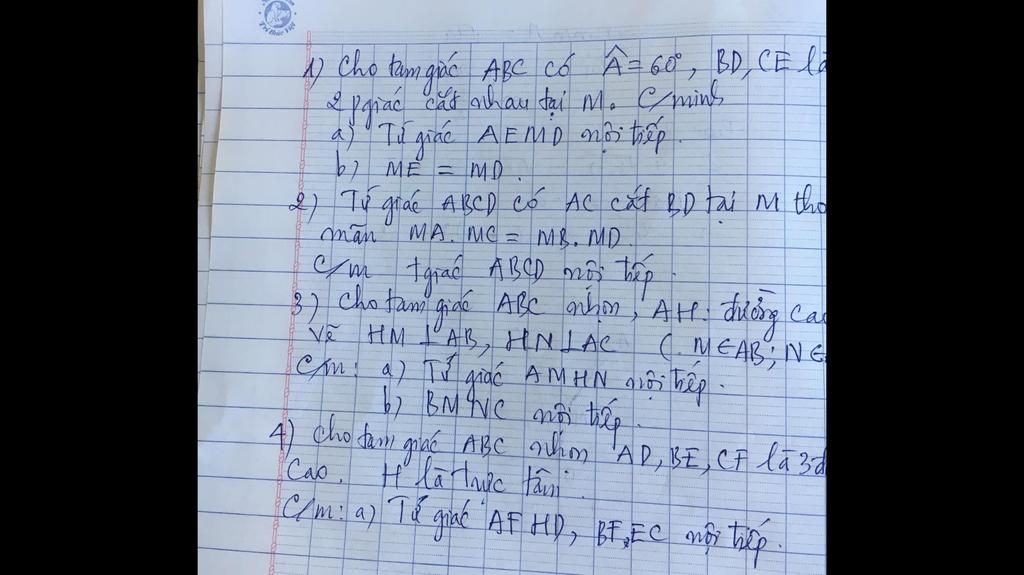 Trí Đức Việt
1) Cho tam giác ABC có Â = 60°, BD, CE là
2 pgiác cắt nhau tại M. C/minh
a) Tứ giác AEMD nội tiếp.
b) ME = MD.
2) Tứ giác ABCD có AC cắt BD tại M tho
mãn MA. MC = MB. MD.
C/m tgiác ABCD nội tiếp.
3) Cho tam giác ABC nhọn, AH: đường cao
Vẽ HM ⊥ AB, HN ⊥ AC (M∈AB; N∈
C/m: a) Tứ giác AMHN nội tiếp.
b) BMNC nội tiếp.
4) Cho tam giác ABC nhọn AD, BE, CF là 3 đ
cao. H là trực tâm.
C/m: a) Tứ giác AFHD, BFEC nội tiếp.